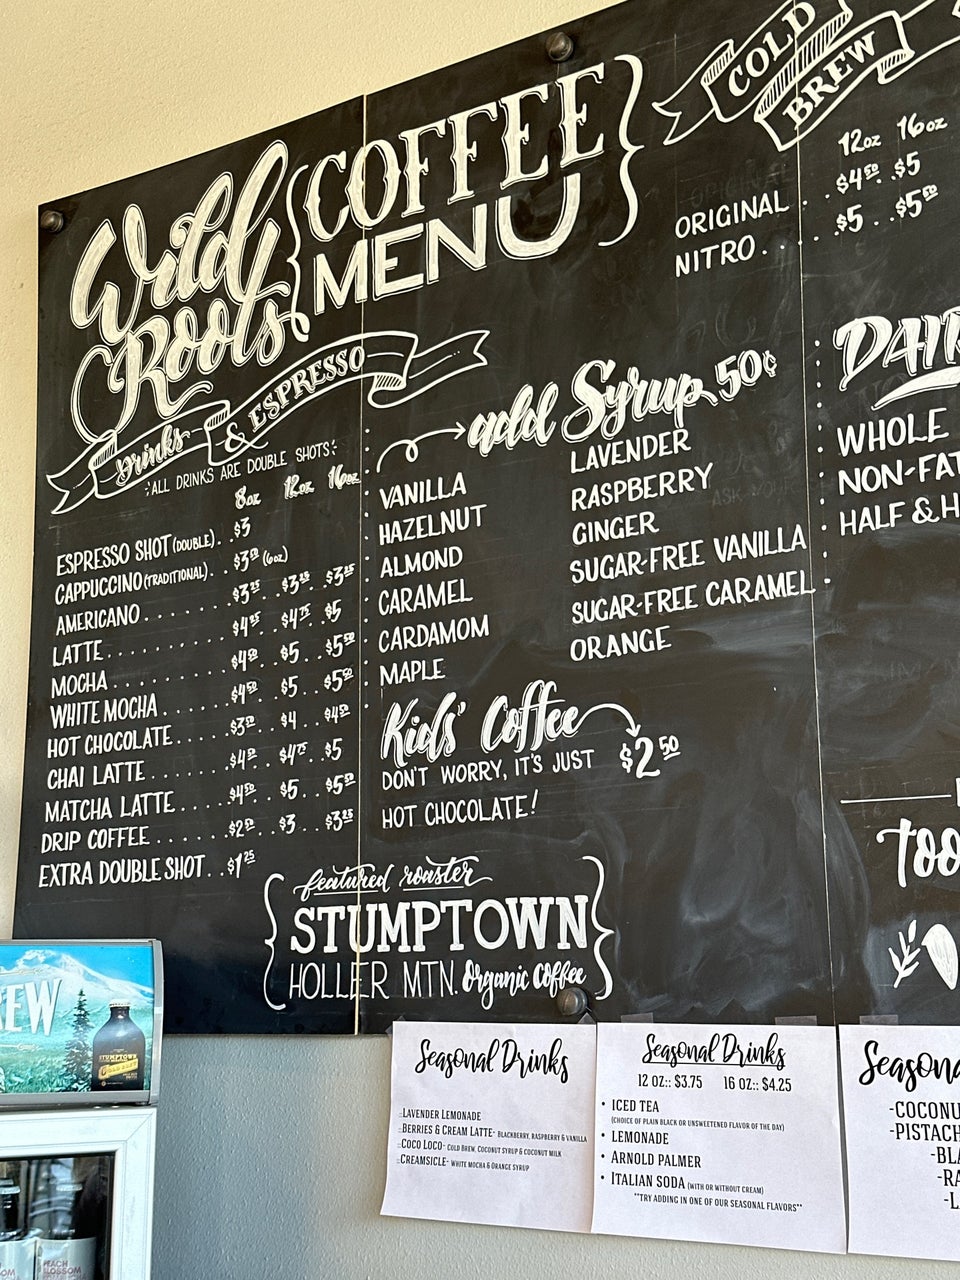 Wild Roots
COFFEE MENU
Drinks & ESPRESSO
ALL DRINKS ARE DOUBLE SHOTS!
8oz 12oz 16oz
ESPRESSO SHOT (DOUBLE) . . $3
CAPPUCCINO (TRADITIONAL) . . $3⁵⁰ (6oz)
AMERICANO . . . . . . . $3²⁵ . . $3²⁵ . . $3²⁵
LATTE . . . . . . . . . $4²⁵ . . $4⁷⁵ . . $5
MOCHA . . . . . . . . . $4⁵⁰ . . $5 . . $5⁵⁰
WHITE MOCHA . . . . . $4⁵⁰ . . $5 . . $5⁵⁰
HOT CHOCOLATE . . . . . $3⁵⁰ . . $4 . . $4⁵⁰
CHAI LATTE . . . . . . . $4⁵⁰ . . $4⁷⁵ . . $5
MATCHA LATTE . . . . . $4⁵⁰ . . $5 . . $5⁵⁰
DRIP COFFEE . . . . . . . $2⁵⁰ . . $3 . . $3²⁵
EXTRA DOUBLE SHOT . . $1²⁵
add Syrup 50¢
VANILLA
HAZELNUT
ALMOND
CARAMEL
CARDAMOM
MAPLE
LAVENDER
RASPBERRY
GINGER
SUGAR-FREE VANILLA
SUGAR-FREE CARAMEL
ORANGE
Kids' Coffee $2⁵⁰
DON'T WORRY, IT'S JUST
HOT CHOCOLATE!
featured roaster
STUMPTOWN
HOLLER MTN. Organic Coffee
COLD BREW
12oz 16oz
ORIGINAL . . $4⁵⁰ . . $5
NITRO . . . . . $5 . . $5⁵⁰
DAIR
WHOLE
NON-FAT
HALF & H
Too
REW
STUMPTOWN
Seasonal Drinks
::Lavender Lemonade
::Berries & Cream Latte- Blackberry, Raspberry & Vanilla
::Coco Loco- Cold Brew, Coconut Syrup & Coconut Milk
::Creamsicle- White Mocha & Orange Syrup
Seasonal Drinks
12 oz:: $3.75 16 oz:: $4.25
• Iced Tea
(Choice of Plain Black or Unsweetened Flavor of the Day)
• Lemonade
• Arnold Palmer
• Italian Soda (with or without cream)
**Try adding in one of our seasonal flavors**
Seasona
-COCONU
-PISTACH
-BLA
-RA
-L